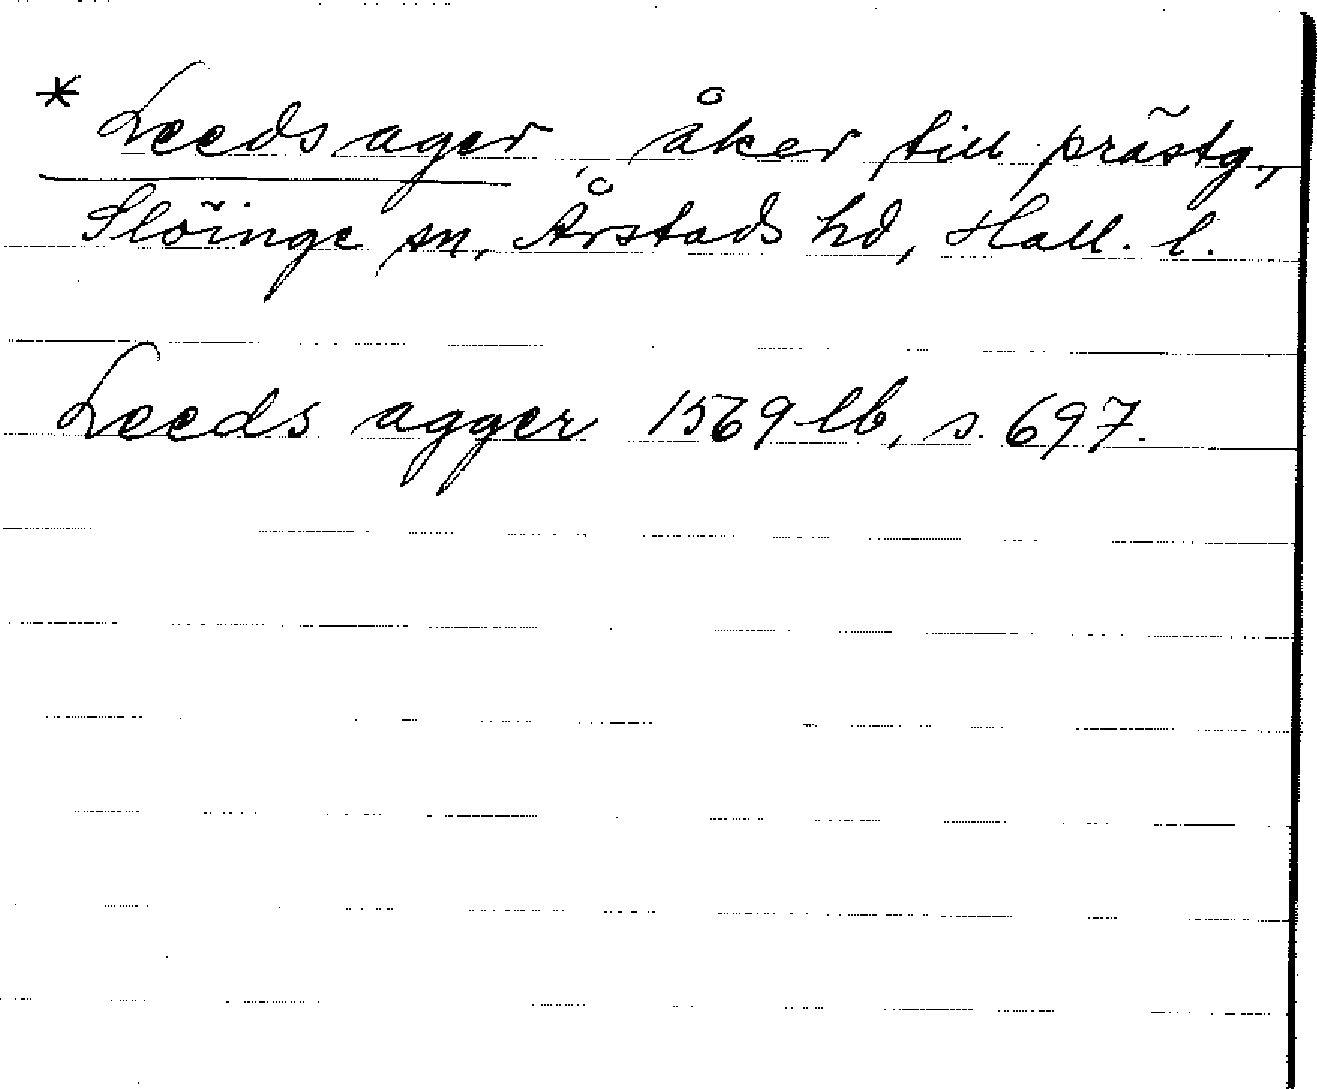 * Leedsager, åker till prästg.,
Slöinge sn, Årstads hd, Hall. l.
Leeds agger 1569 lb, s. 697.